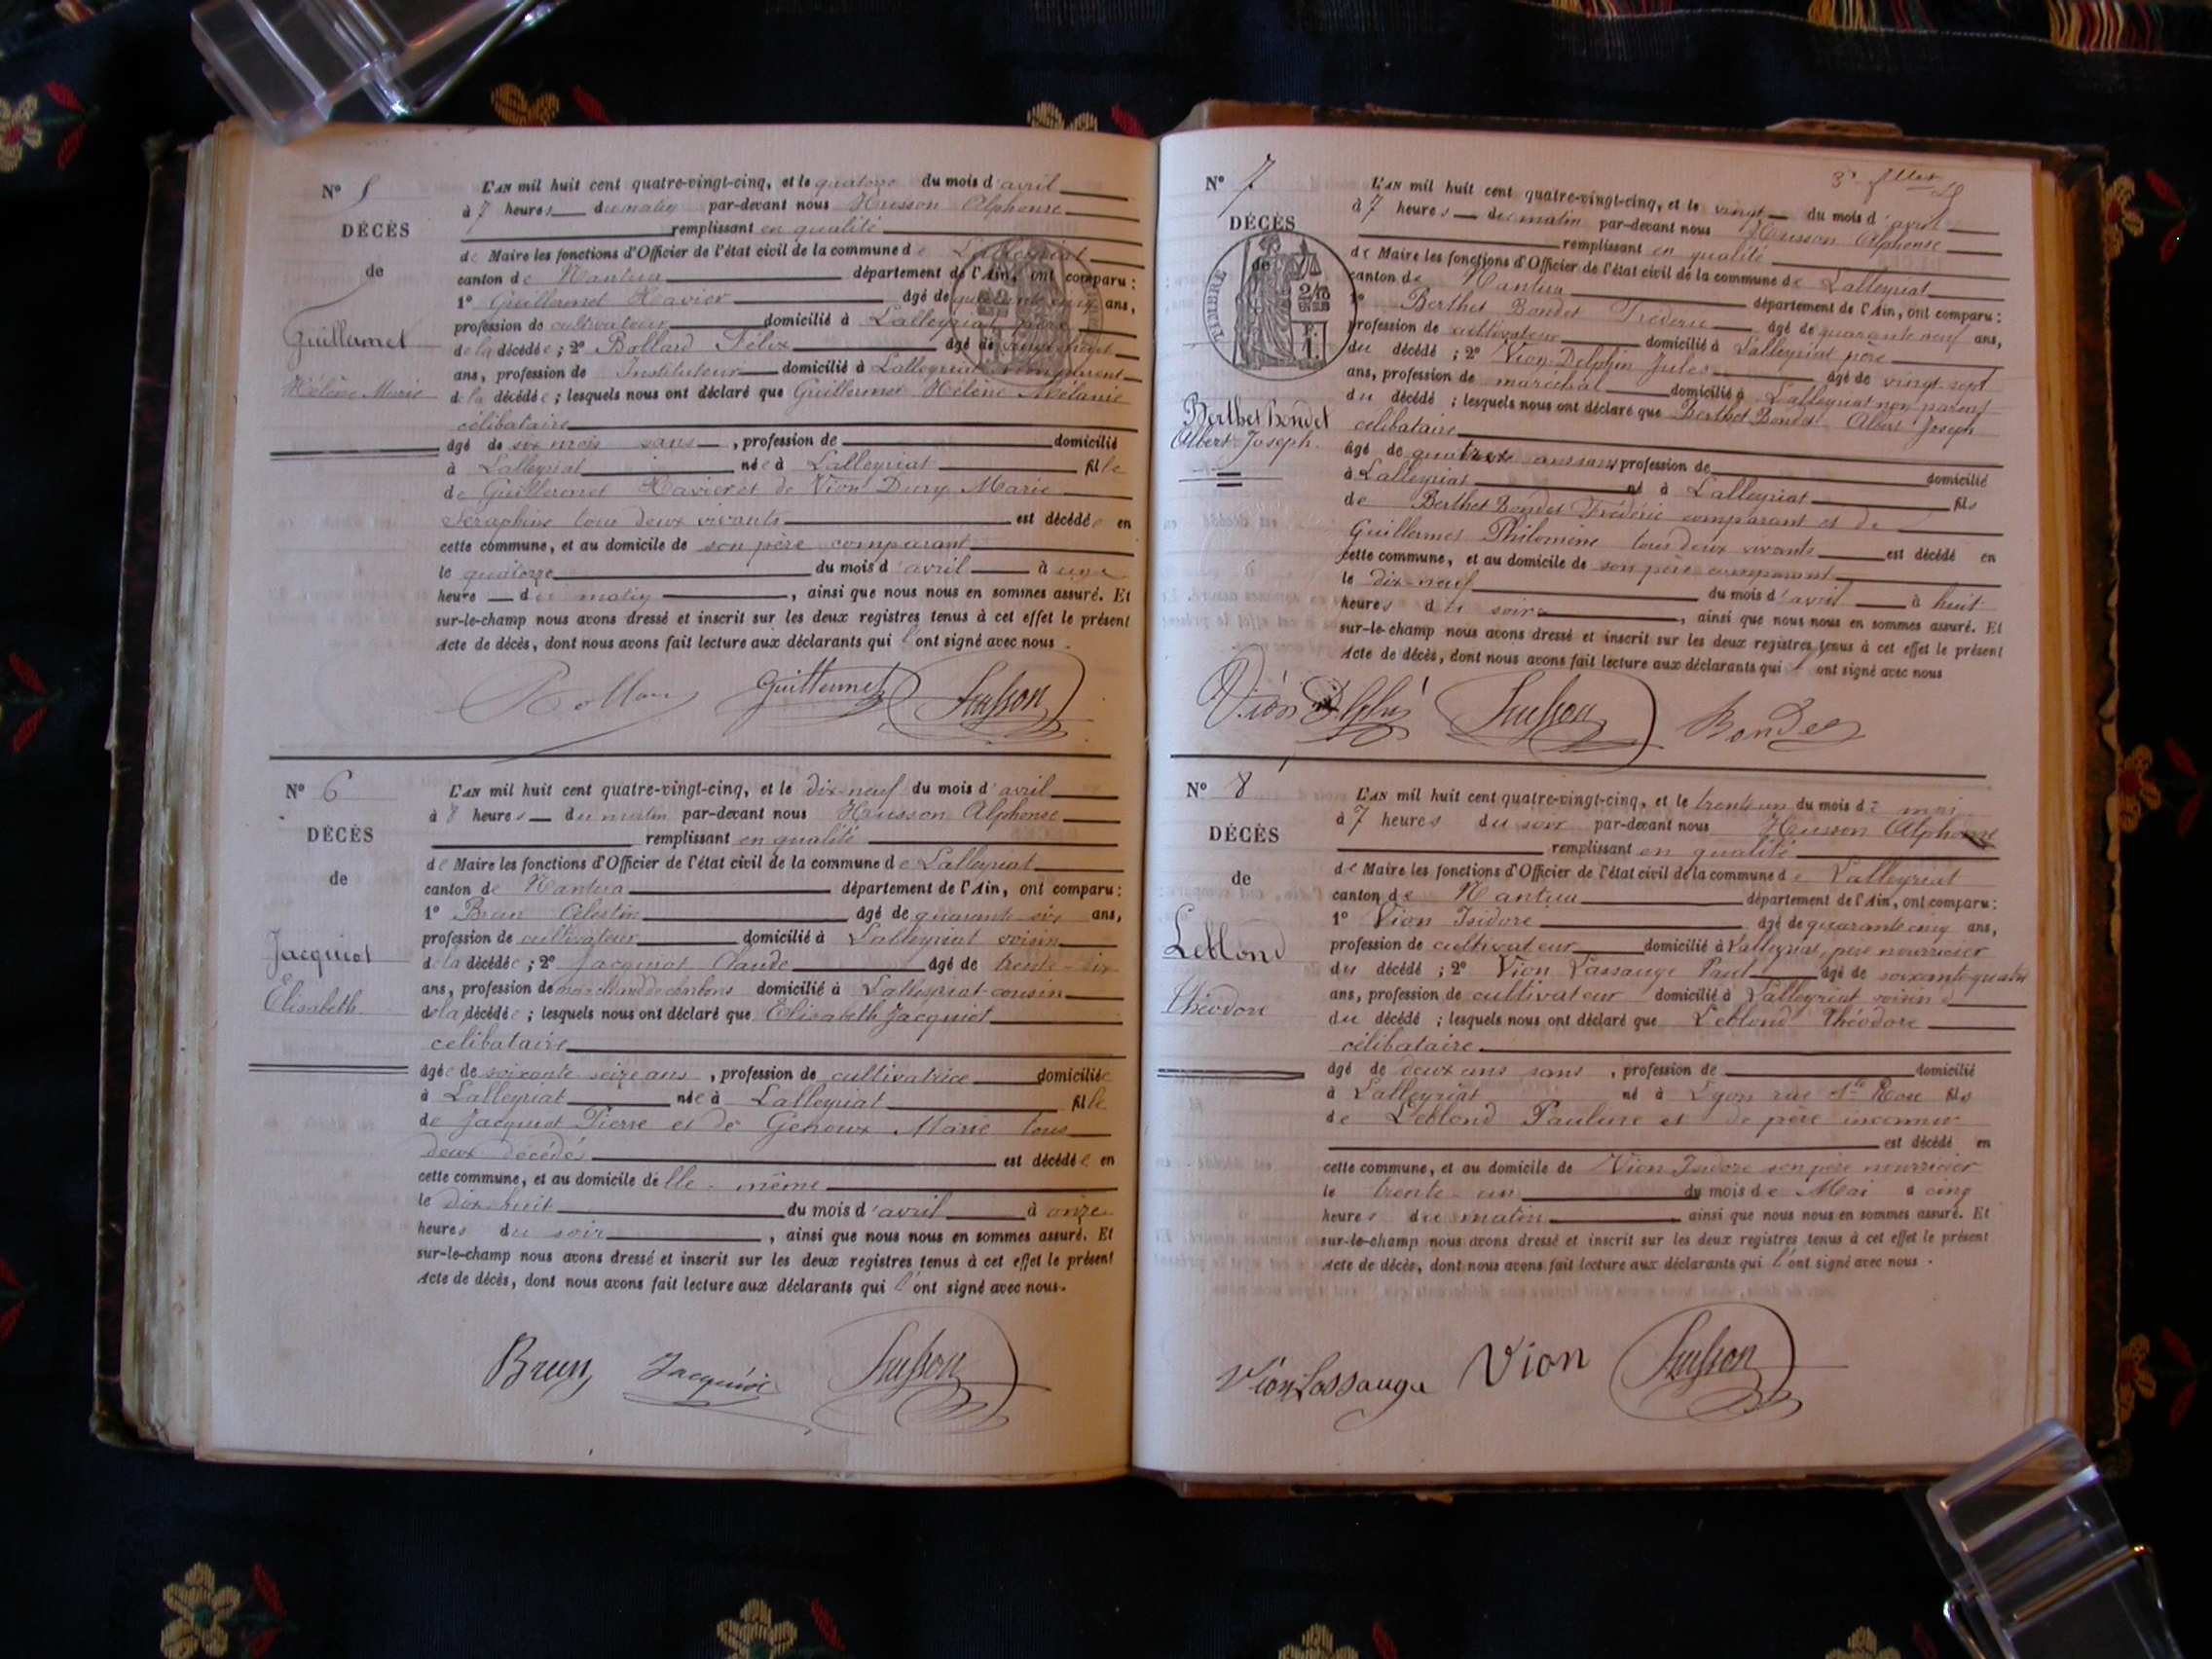 N° 5
DÉCÈS
de
Guillermet
Hélène Marie
L'AN mil huit cent quatre-vingt-cinq, et le quatorze du mois d'avril
à 7 heures du matin par-devant nous Husson Alphonse
remplissant en qualité
de Maire les fonctions d'Officier de l'état civil de la commune de Lalleyriat
canton de Nantua département de l'Ain, ont comparu :
1° Guillermet Xavier âgé de quarante cinq ans,
profession de cultivateur domicilié à Lalleyriat père
de la décédée ; 2° Bollard Félix âgé de vingt-huit
ans, profession de Instituteur domicilié à Lalleyriat non parent
de la décédée ; lesquels nous ont déclaré que Guillermet Hélène Mélanie
célibataire
âgé de six mois sans , profession de domicilié
à Lalleyriat née à Lalleyriat fille
de Guillermet Xavier et de Vion Dury Marie
Séraphine tous deux vivants est décédée en
cette commune, et au domicile de son père comparant
le quatorze du mois d'avril à une
heure du matin , ainsi que nous nous en sommes assuré. Et
sur-le-champ nous avons dressé et inscrit sur les deux registres tenus à cet effet le présent
Acte de décès, dont nous avons fait lecture aux déclarants qui l'ont signé avec nous.
Guillermet Husson
N° 6
DÉCÈS
de
Jacquiot
Elisabeth
L'AN mil huit cent quatre-vingt-cinq, et le dix-neuf du mois d'avril
à 8 heures du matin par-devant nous Husson Alphonse
remplissant en qualité
de Maire les fonctions d'Officier de l'état civil de la commune de Lalleyriat
canton de Nantua département de l'Ain, ont comparu :
1° Brun Célestin âgé de quarante-six ans,
profession de cultivateur domicilié à Lalleyriat voisin
de la décédée ; 2° Jacquiot Claude âgé de trente-six
ans, profession de marchand de domicilié à Lalleyriat cousin
de la décédée ; lesquels nous ont déclaré que Elisabeth Jacquiot
célibataire
âgée de soixante seize ans , profession de cultivatrice domiciliée
à Lalleyriat née à Lalleyriat fille
de Jacquiot Pierre et de Genoux Marie tous
deux décédés est décédée en
cette commune, et au domicile d'elle-même
le dix-huit du mois d'avril à onze
heures du soir , ainsi que nous nous en sommes assuré. Et
sur-le-champ nous avons dressé et inscrit sur les deux registres tenus à cet effet le présent
Acte de décès, dont nous avons fait lecture aux déclarants qui l'ont signé avec nous.
Brun Jacquiot Husson
N° 7
DÉCÈS
de
TIMBRE
Berthet Bondet
Albert Joseph
L'AN mil huit cent quatre-vingt-cinq, et le vingt du mois d'avril
à 7 heures du matin par-devant nous Husson Alphonse
remplissant en qualité
de Maire les fonctions d'Officier de l'état civil de la commune de Lalleyriat
canton de Nantua département de l'Ain, ont comparu :
1° Berthet Bondet Frédéric âgé de quarante neuf ans,
profession de cultivateur domicilié à Lalleyriat père
du décédé ; 2° Vion-Delphin Jules âgé de vingt-sept
ans, profession de maréchal domicilié à Lalleyriat non parent
du décédé ; lesquels nous ont déclaré que Berthet Bondet Albert Joseph
célibataire
âgé de quatre ans sans profession de domicilié
à Lalleyriat né à Lalleyriat fils
de Berthet Bondet Frédéric comparant et de
Guillermet Philomène tous deux vivants est décédé en
cette commune, et au domicile de son père comparant
le dix-neuf du mois d'avril à huit
heures du soir , ainsi que nous nous en sommes assuré. Et
sur-le-champ nous avons dressé et inscrit sur les deux registres tenus à cet effet le présent
Acte de décès, dont nous avons fait lecture aux déclarants qui l'ont signé avec nous
Vion Husson Bondet
N° 8
DÉCÈS
de
Leblond
Théodore
L'AN mil huit cent quatre-vingt-cinq, et le trente un du mois de mai
à 7 heures du soir par-devant nous Husson Alphonse
remplissant en qualité
de Maire les fonctions d'Officier de l'état civil de la commune de Lalleyriat
canton de Nantua département de l'Ain, ont comparu :
1° Vion Isidore âgé de quarante cinq ans,
profession de cultivateur domicilié à Lalleyriat, père nourricier
du décédé ; 2° Vion Lassauge Paul âgé de soixante quatre
ans, profession de cultivateur domicilié à Lalleyriat voisin
du décédé ; lesquels nous ont déclaré que Leblond Théodore
célibataire
âgé de deux ans sans , profession de domicilié
à Lalleyriat né à Lyon rue Ste Rose fils
de Leblond Pauline et de père inconnu
est décédé en
cette commune, et au domicile de Vion Isidore son père nourricier
le trente-un du mois de Mai à cinq
heures du matin ainsi que nous nous en sommes assuré. Et
sur-le-champ nous avons dressé et inscrit sur les deux registres tenus à cet effet le présent
Acte de décès, dont nous avons fait lecture aux déclarants qui l'ont signé avec nous.
Vion Lassauge Vion Husson